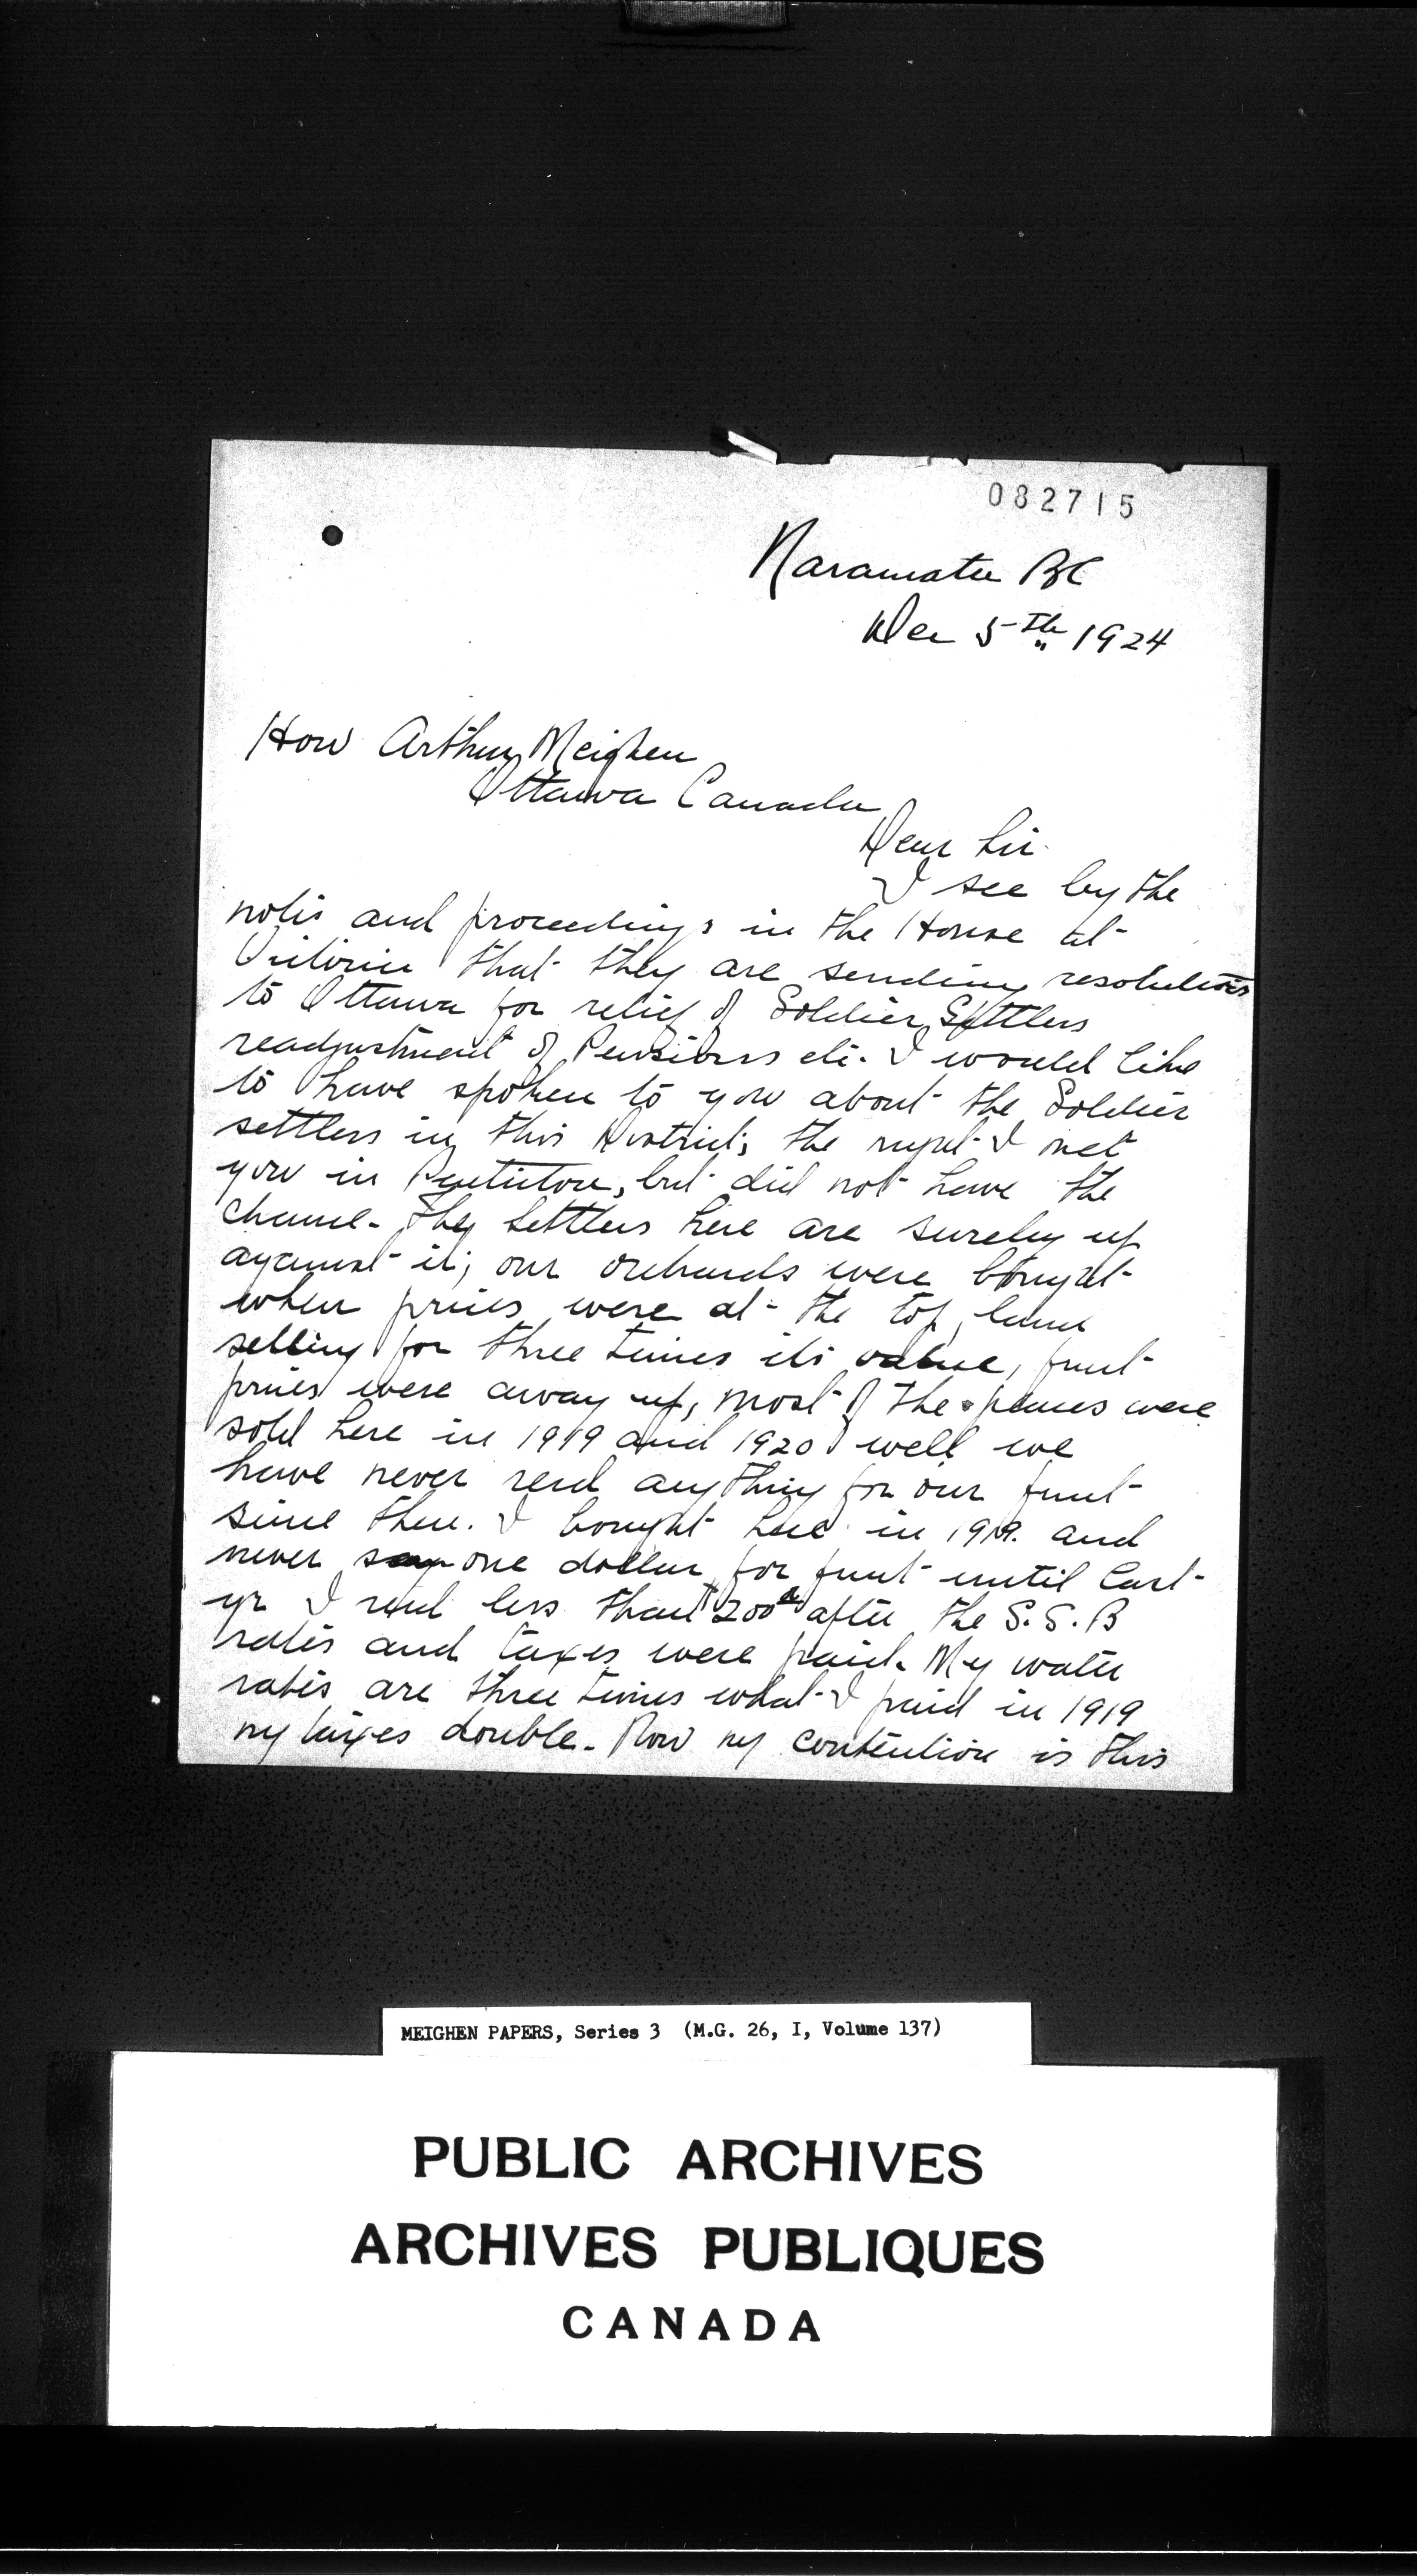 082715
Naramata BC
Dec 5th 1924
Hon Arthur Meighen
Ottawa Canada
Dear Sir
I see by the
notis and proceedings in the House at
Victoria that they are sending resolutions
to Ottawa for relief of Soldier Settlers
readjustment of Pensions etc. I would like
to have spoken to you about the Soldier
settlers in this District, the night I met
you in Penticton, but did not have the
chance. The Settlers here are surely up
against it, our orchards were bought
when prices were at the top, land
selling for three times its value, fruit
prices were away up, most of the places were
sold here in 1919 and 1920 well we
have never recd anything for our fruit
since then. I bought here in 1919. and
never one dollar for fruit until last
yr I recd less than $200 after the S.S.B
rates and taxes were paid. My water
rates are three times what I paid in 1919
my taxes double. Now my contention is this
MEIGHEN PAPERS, Series 3 (M.G. 26, I, Volume 137)
PUBLIC ARCHIVES
ARCHIVES PUBLIQUES
CANADA